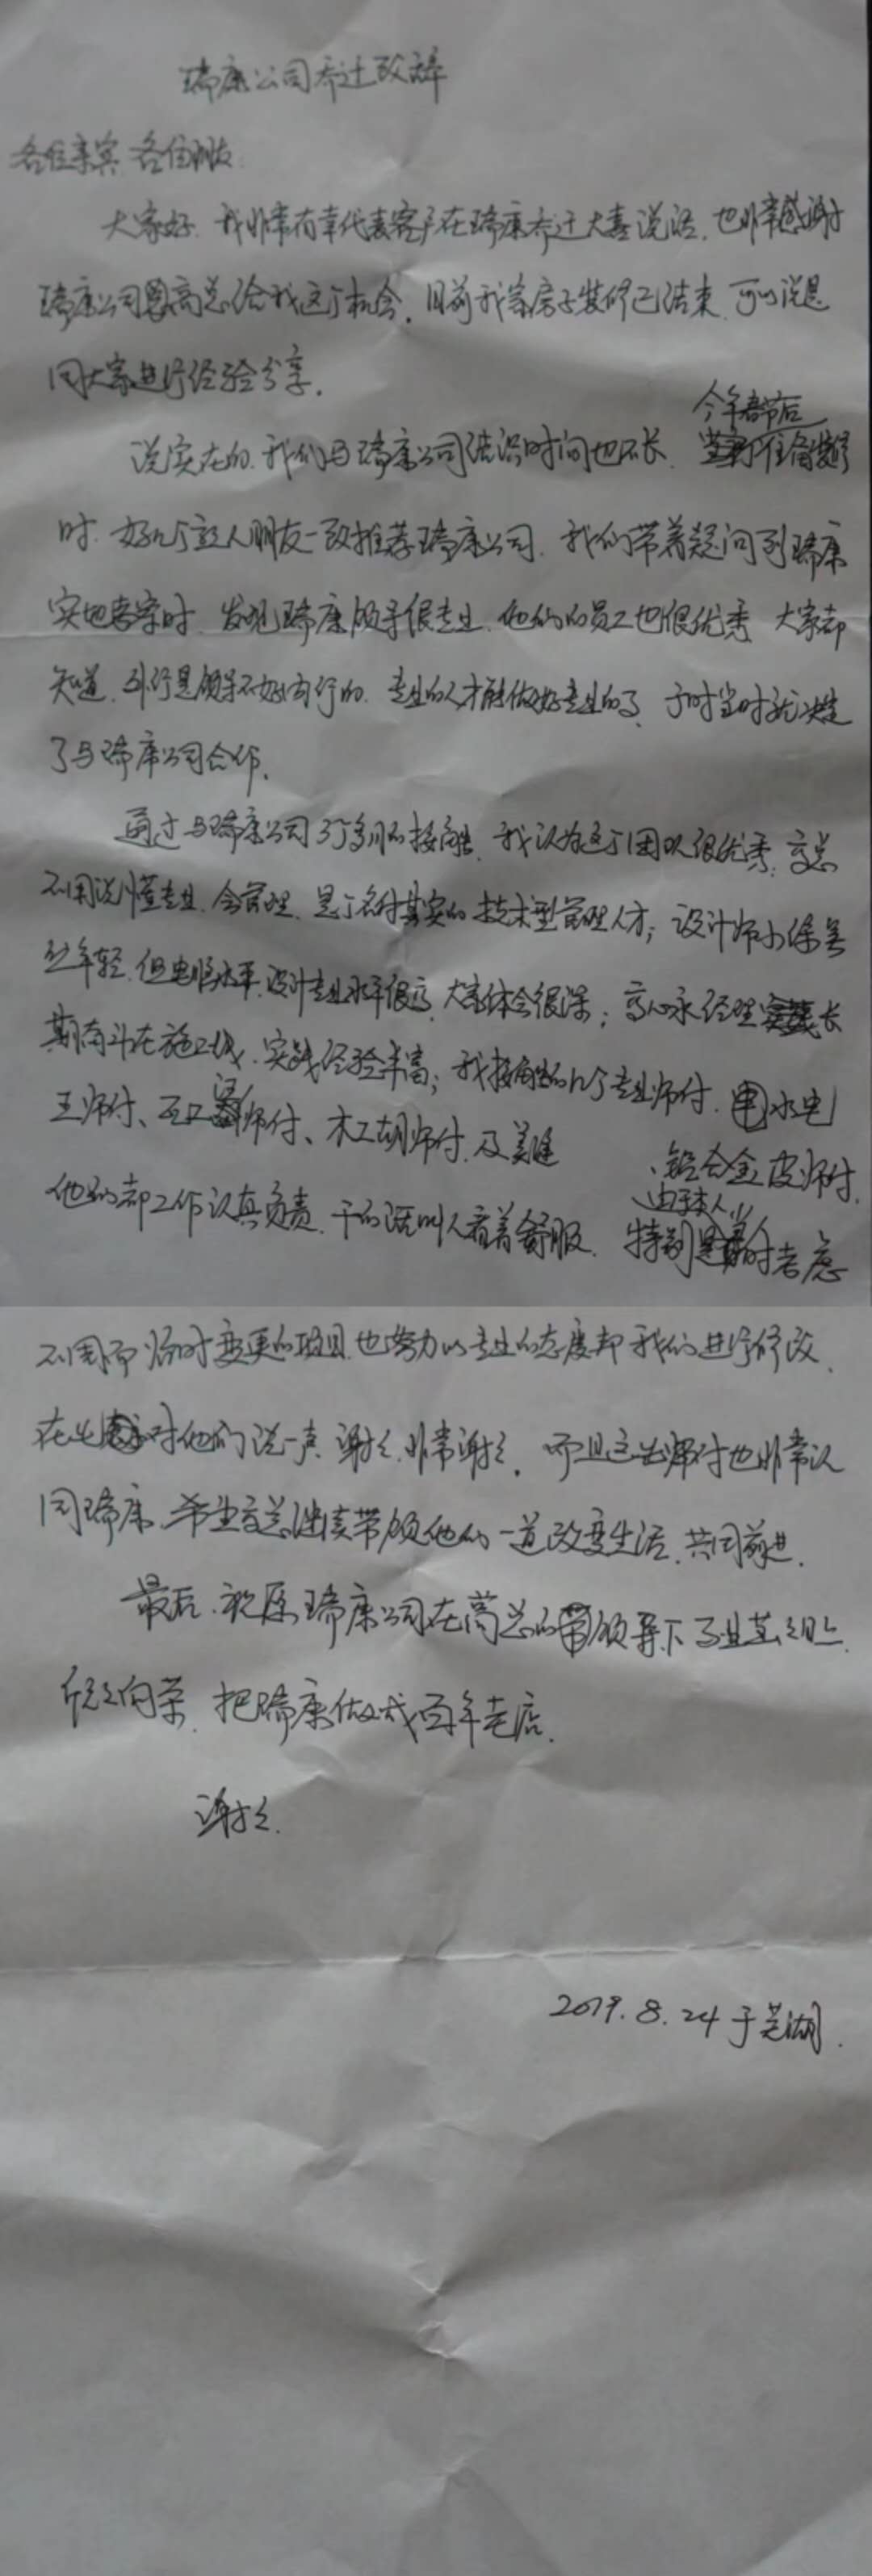 瑞康公司乔迁致辞
各位亲宾 各位朋友:
大家好. 我非常有幸代表客户在瑞康乔迁大喜说话. 也非常感谢
瑞康公司高总给我这个机会. 目前我家房子装修已结束 可以说是
同大家进行经验分享.
今年春节后
说实在的. 我们与瑞康公司结识时间也不长. 准备装修
时. 好几个熟人朋友一致推荐瑞康公司. 我们带着疑问到瑞康
实地考察时. 发现瑞康领导很专业. 他们的员工也很优秀 大家都
知道. 外行是领导不好内行的. 专业的人才能做好专业的事. 于时当时就决定
了与瑞康公司合作.
通过与瑞康公司3个多月的接触. 我认为这个团队很优秀. 高总
不用说懂专业. 会管理. 是个名付其实的技术型管理人才; 设计师小徐
年轻. 但电脑水平. 设计专业水平很高. 大家体会很深; 高心永经理长
期奋斗在施工一线. 实践经验丰富; 我接触的几个专业师付. 水电
王师付、瓦工师付、木工胡师付. 及美缝
、铝合金皮师付.
由于本人
他们都工作认真负责. 干的活叫人看着舒服. 特别是考虑
不周而临时变更的项目. 也努力以专业的态度帮我们进行修改.
在此对他们说一声 谢谢. 非常谢谢. 而且这些师付也非常认
同瑞康. 希望高总继续带领他们一道改变生活. 共同前进.
最后. 祝愿瑞康公司在高总的领导下 事业蒸蒸日上.
欣欣向荣. 把瑞康做成百年老店.
谢谢.
2019.8.24于芜湖.